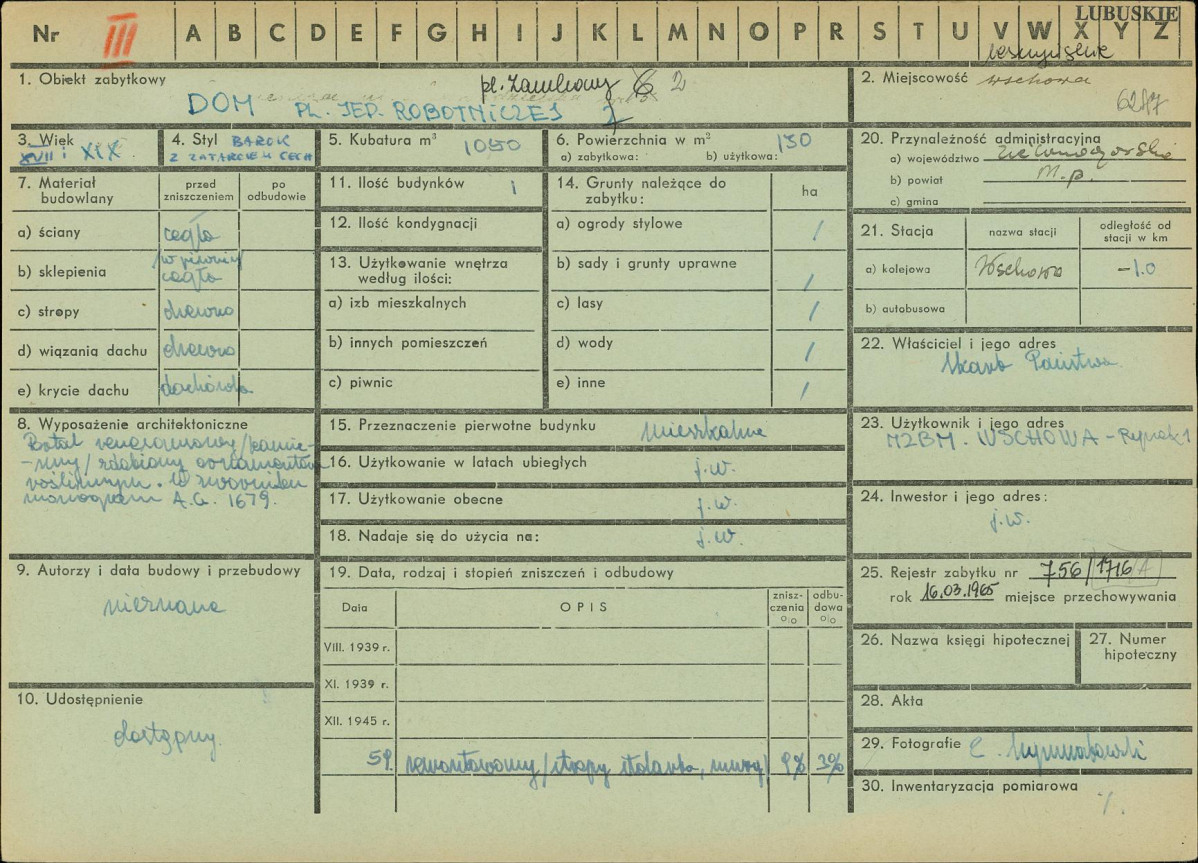 LUBUSKIE
Nr III A B C D E F G H I J K L M N O P R S T U V W X Y Z
1. Obiekt zabytkowy
pl. Zamkowy 2
DOM PL. JED. ROBOTNICZEJ 2
2. Miejscowość Wschowa
6287
3. Wiek
XVII i XIX
4. Styl BAROK
Z ZATARCIEM CECH
5. Kubatura m³ 1050
6. Powierzchnia w m²
a) zabytkowa: b) użytkowa: 130
7. Materiał budowlany
przed zniszczeniem
po odbudowie
a) ściany cegła
b) sklepienia /w piwnicy/ cegła
c) stropy drewno
d) wiązania dachu drewno
e) krycie dachu dachówka
8. Wyposażenie architektoniczne
Portal renesansowy /kamie-
-nny/ zdobiony ornamentem
roślinnym. W zworniku
monogram A.G. 1679.
9. Autorzy i data budowy i przebudowy
nieznane
10. Udostępnienie
dostępny.
11. Ilość budynków 1
12. Ilość kondygnacji
13. Użytkowanie wnętrza
według ilości:
a) izb mieszkalnych
b) innych pomieszczeń
c) piwnic
14. Grunty należące do
zabytku:
ha
a) ogrody stylowe /
b) sady i grunty uprawne /
c) lasy /
d) wody /
e) inne /
15. Przeznaczenie pierwotne budynku mieszkalne
16. Użytkowanie w latach ubiegłych j.w.
17. Użytkowanie obecne j.w.
18. Nadaje się do użycia na: j.w.
19. Data, rodzaj i stopień zniszczeń i odbudowy
Data
OPIS
znisz-
czenia
%
odbu-
dowa
%
VIII. 1939 r.
XI. 1939 r.
XII. 1945 r.
59. remontowany /stropy stolarka, mury/ 9% 3%
20. Przynależność administracyjna
a) województwo Zielonogórskie
b) powiat m.p.
c) gmina
21. Stacja
nazwa stacji
odległość od
stacji w km
a) kolejowa Wschowa -1.0
b) autobusowa
22. Właściciel i jego adres
Skarb Państwa.
23. Użytkownik i jego adres
MZBM. WSCHOWA - Rynek 1
24. Inwestor i jego adres:
j.w.
25. Rejestr zabytku nr 756/1716/A
rok 16.03.1965 miejsce przechowywania
26. Nazwa księgi hipotecznej
27. Numer
hipoteczny
28. Akta
29. Fotografie
30. Inwentaryzacja pomiarowa